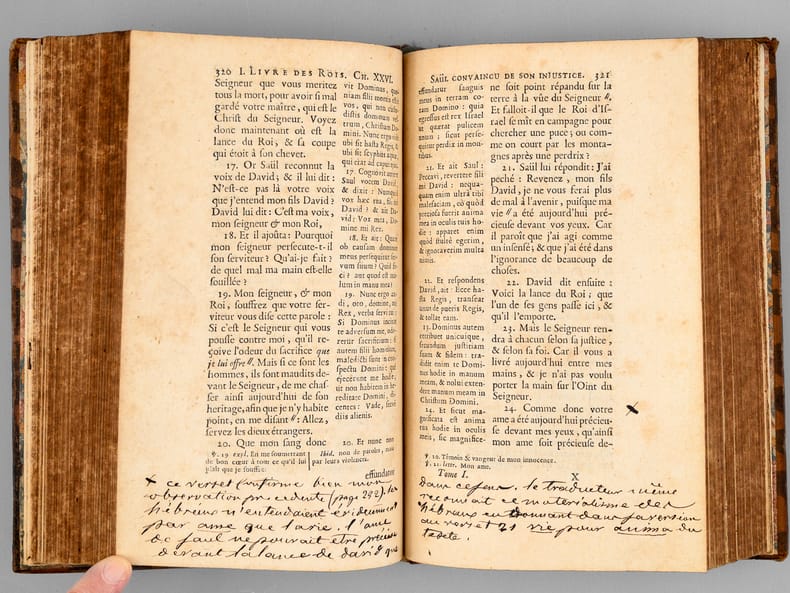 320 I. LIVRE DES ROIS. CH. XXVI.
Seigneur que vous meritez
tous la mort, pour avoir si mal
gardé votre maître, qui est le
Christ du Seigneur. Voyez
donc maintenant où est la
lance du Roi, & sa coupe
qui étoit à son chevet.
17. Or Saül reconnut la
voix de David; & il lui dit:
N'est-ce pas là votre voix
que j'entend mon fils David?
David lui dit: C'est ma voix,
mon seigneur & mon Roi,
18. Et il ajoûta: Pourquoi
mon seigneur persecute-t-il
son serviteur? Qu'ai-je fait?
de quel mal ma main est-elle
souillée?
19. Mon seigneur, & mon
Roi, souffrez que votre ser-
viteur vous dise cette parole:
Si c'est le Seigneur qui vous
pousse contre moi, qu'il re-
çoive l'odeur du sacrifice que
je lui offre ʺ. Mais si ce sont les
hommes, ils sont maudits de-
vant le Seigneur, de me chas-
ser ainsi aujourd'hui de son
heritage, afin que je n'y habite
point, en me disant ʺ: Allez,
servez les dieux étrangers.
20. Que mon sang donc
vit Dominus, quo-
niam filii mortis estis
vos, qui non custo-
distis dominum ves-
trum, Christum Do-
mini. Nunc ergo vide
ubi sit hasta Regis, &
ubi sit scyphus aquæ,
qui erat ad caput ejus.
17. Cognovit autem
Saul vocem David,
& dixit: Numquid
vox hæc tua, fili mi
David? & ait Da-
vid: Vox mea, Do-
mine mi Rex.
18. Et ait: Quam
ob causam dominus
meus persequitur ser-
vum suum? Quid fe-
ci? aut quod est ma-
lum in manu mea?
19. Nunc ergo au-
di, oro, domine, mi
Rex, verba servi tui:
Si Dominus incitat
te adversum me, odo-
retur sacrificium: si
autem filii hominum,
maledicti sunt in con-
spectu Domini: qui
ejecerunt me hodie,
ut non habitem in he-
reditate Domini, di-
centes: Vade, servi
diis alienis.
20. Et nunc non
effundatur
℣. 19 expl. En me soumettant
de bon cœur à tout ce qu'il lui
plaît que je souffre.
Ibid. non de paroles, mais
par leurs violences.
x ce verset confirme bien mon
observation precedente (page 292), les
hébreux n'entendaient évidemment
par ame que la vie. l'ame
de saul ne pouvait etre précieuse
devant la lance de david que
SAÜL CONVAINCU DE SON INJUSTICE. 321
effundatur sanguis
meus in terram co-
ram Domino: quia
egressus est rex Israel
ut quærat pulicem
unum, sicut perse-
quitur perdix in mon-
tibus.
21. Et ait Saul:
Peccavi, revertere fili
mi David: nequa-
quam enim ultra tibi
malefaciam, eò quòd
pretiosa fuerit anima
mea in oculis tuis ho-
die: apparet enim
quòd stultè egerim,
& ignoraverim multa
nimis.
22. Et respondens
David, ait: Ecce ha-
sta Regis, transeat
unus de pueris Regis,
& tollat eam.
23. Dominus autem
retribuet unicuique,
secundùm justitiam
suam & fidem: tra-
didit enim te Domi-
nus hodie in manum
meam, & nolui exten-
dere manum meam in
Christum Domini.
24. Et sicut ma-
gnificata est anima
tua hodie in oculis
meis, sic magnifice-
ne soit point répandu sur la
terre à la vûe du Seigneur ʺ.
Et falloit-il que le Roi d'Is-
rael se mît en campagne pour
chercher une puce; ou com-
me on court par les monta-
gnes après une perdrix?
21. Saül lui répondit: J'ai
peché: Revenez, mon fils
David, je ne vous ferai plus
de mal à l'avenir, puisque ma
vie ʺ a été aujourd'hui pré-
cieuse devant vos yeux. Car
il paroît que j'ai agi comme
un insensé, & que j'ai été dans
l'ignorance de beaucoup de
choses.
22. David dit ensuite:
Voici la lance du Roi; que
l'un de ses gens passe ici, &
qu'il l'emporte.
23. Mais le Seigneur ren-
dra à chacun selon sa justice,
& selon sa foi. Car il vous a
livré aujourd'hui entre mes
mains, & je n'ai pas voulu
porter la main sur l'Oint du
Seigneur.
24. Comme donc votre
ame a été aujourd'hui précieu-
se devant mes yeux, qu'ainsi
mon ame soit précieuse de-
x
℣. 20. Témoin & vangeur de mon innocence.
℣. 21. lettr. Mon ame.
Tome I. X
dans ce sens. le traducteur même
reconnait ce materialisme des
hébreux en trouvant dans sa version
au verset 21 vie pour anima du
texte.